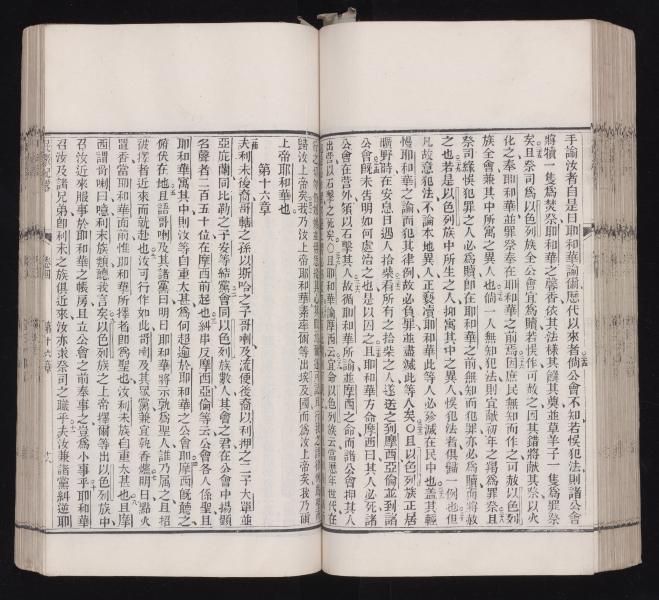 手諭汝者自是日耶和華諭爾歷代以來者倘公會不知若悞犯法則諸公會
將犢一隻爲焚祭耶和華之馨香依其法樣其饙其奠並草羊子一隻爲罪祭
矣且祭司爲以色列族全公會宜爲贖若悞作可赦之因其錯將獻其祭以火
化之奉耶和華並罪祭奉在耶和華之前焉因庶民無知而作之可赦以色列
族全會兼其中所寓之異人也倘一人無知犯法則宜献初年之羖爲罪祭且
祭司緣悞犯罪之人必爲贖即在耶和華之前無知而犯罪亦必爲贖而將赦
之也若是以色列族中所生之人抑寓其中之異人悞犯法者俱歸一例也但
凡故意犯法不論本地異人正褻凟耶和華此等人必殄滅在民中也蓋其輕
慢耶和華之諭而犯其律例故必負罪並盡滅此等人矣〇且以色列族正居
曠野時在安息日遇人拾柴看所有之拾柴之人遂送之到摩西亞倫並到諸
公會旣未告明如何處治之也是以囚之且耶和華方命摩西曰其人必死諸
公會在營外須以石擊其人故循耶和華所諭並摩西之命而諸公會押其人
出營以石擊之死矣〇且耶和華諭摩西云宜命以色列族云當歷年世代在
歸汝上帝矣我乃汝上帝耶和華素率爾等出埃及國而爲汝上帝矣我乃爾
上帝耶和華也
第十六章
夫利未後裔哥轄之孫以斯哈之子哥喇及流便後裔以利押之二子大單並
亞庇蘭同比勒之子安等結黨會同以色列族數人其會之君在公會中揚顯
名聲者二百五十位在摩西前起也糾串反摩西亞倫等云公會各人係聖且
耶和華寓其中則汝等自重太甚爲何超逾於耶和華之公會卽摩西旣聽之
俯伏在地且語哥喇及其諸黨曰明日耶和華將示孰爲聖人誰乃屬之且招
彼擇者近來而就赴也汝可行作如此哥喇及其眾黨兼宜執香爐明日點火
置香當耶和華面前惟耶和華所擇者即爲聖也汝利未族自重太甚也且摩
西謂哥喇曰噫利未族類聽我言矣以色列族之上帝擇爾等出以色列族中
召汝近來服事於耶和華之帳房且立公會之前奉事之豈爲小事乎耶和華
召汝及諸兄弟卽利未之族俱近來汝亦求祭司之職乎夫汝兼諸黨糾逆耶
第十六章